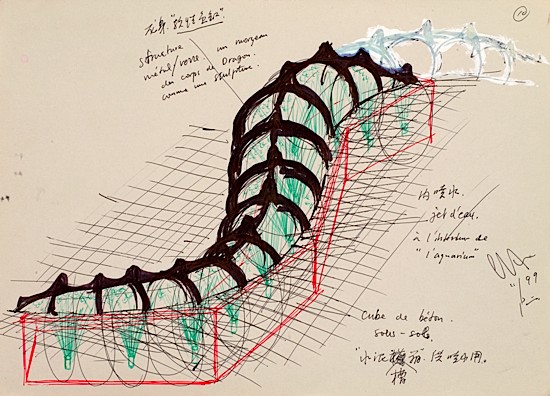 龙身."软性鱼缸".
structure
métal/verre. un morceau
du corps de Dragon.
comme une sculpture.
10
内喷水.
jet d'eau.
à l'intérieur de
"l'aquarium"
'99
cube de béton.
sous-sols.
"水泥箱.供喷水用。
槽